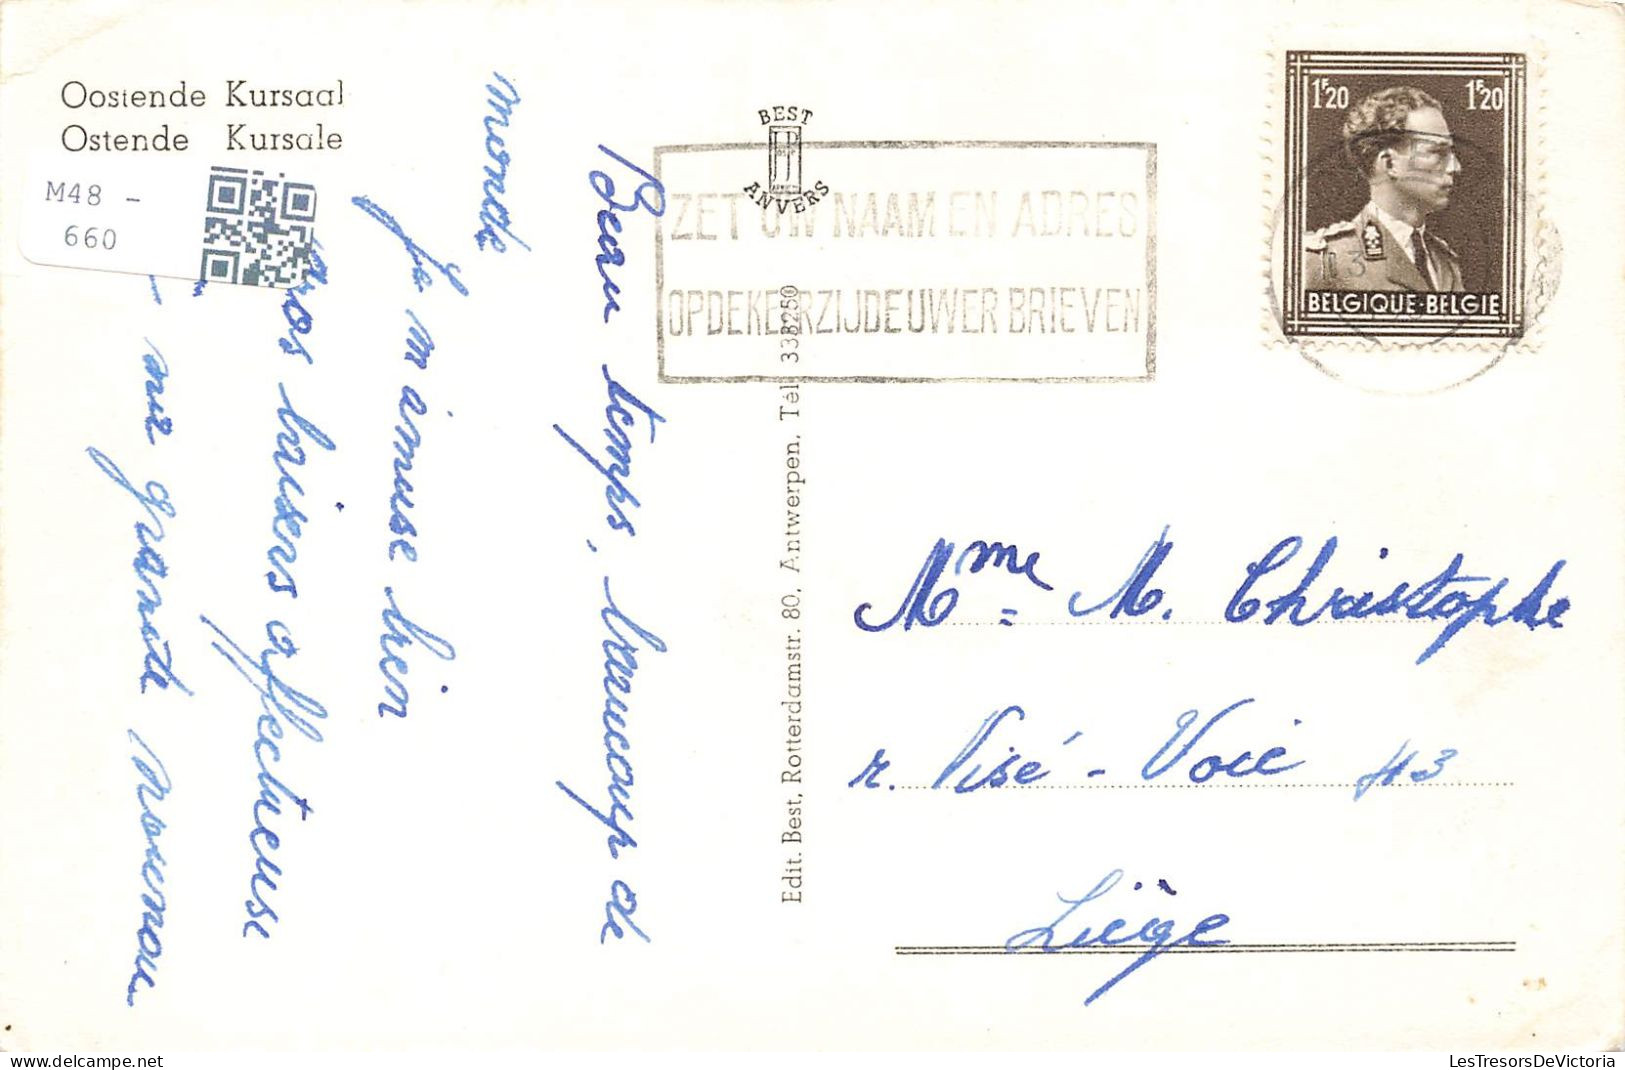 Oostende Kursaal
Ostende Kursale
M48 -
660
BEST
ANVERS
ZET UW NAAM EN ADRES
OP DE KEERZIJDE UWER BRIEVEN
1F20 1F20
BELGIQUE-BELGIE
Beau temps, beaucoup de
monde
Je m'amuse bien
Gros baisers affectueuse
- ma grande
Edit. Best, Rotterdamstr. 80, Antwerpen. Tél. 338250
Mme M. Christophe
r. Visé-Voie 43
Liège
LesTresorsDeVictoria